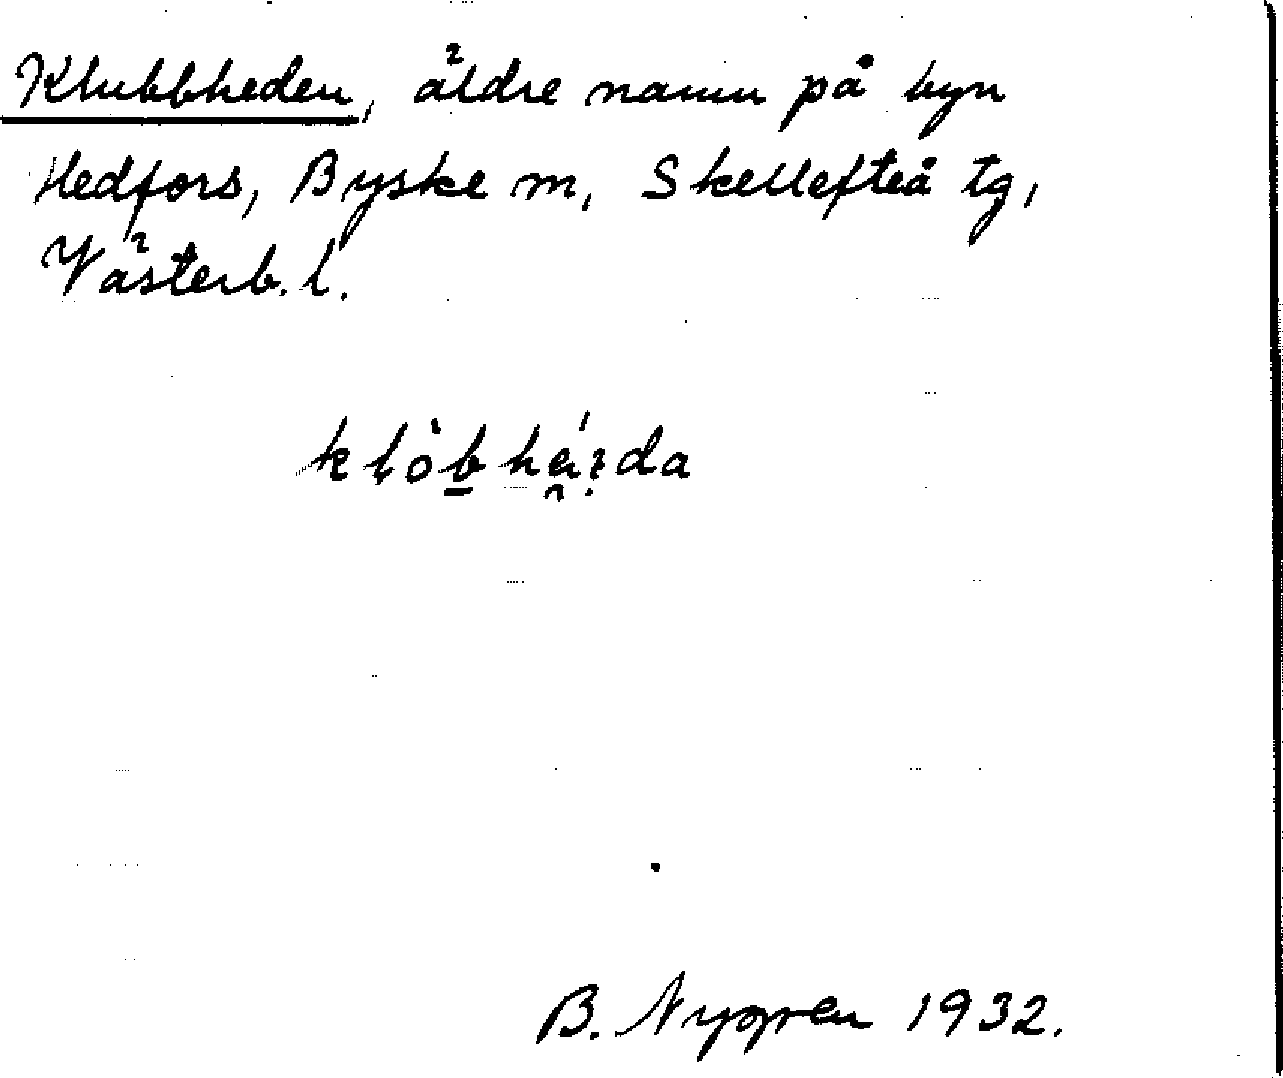 Klubbheden, äldre namn på byn
Hedfors, Byske sn, Skellefteå tg,
Västerb. l.
B. Nygren 1932.